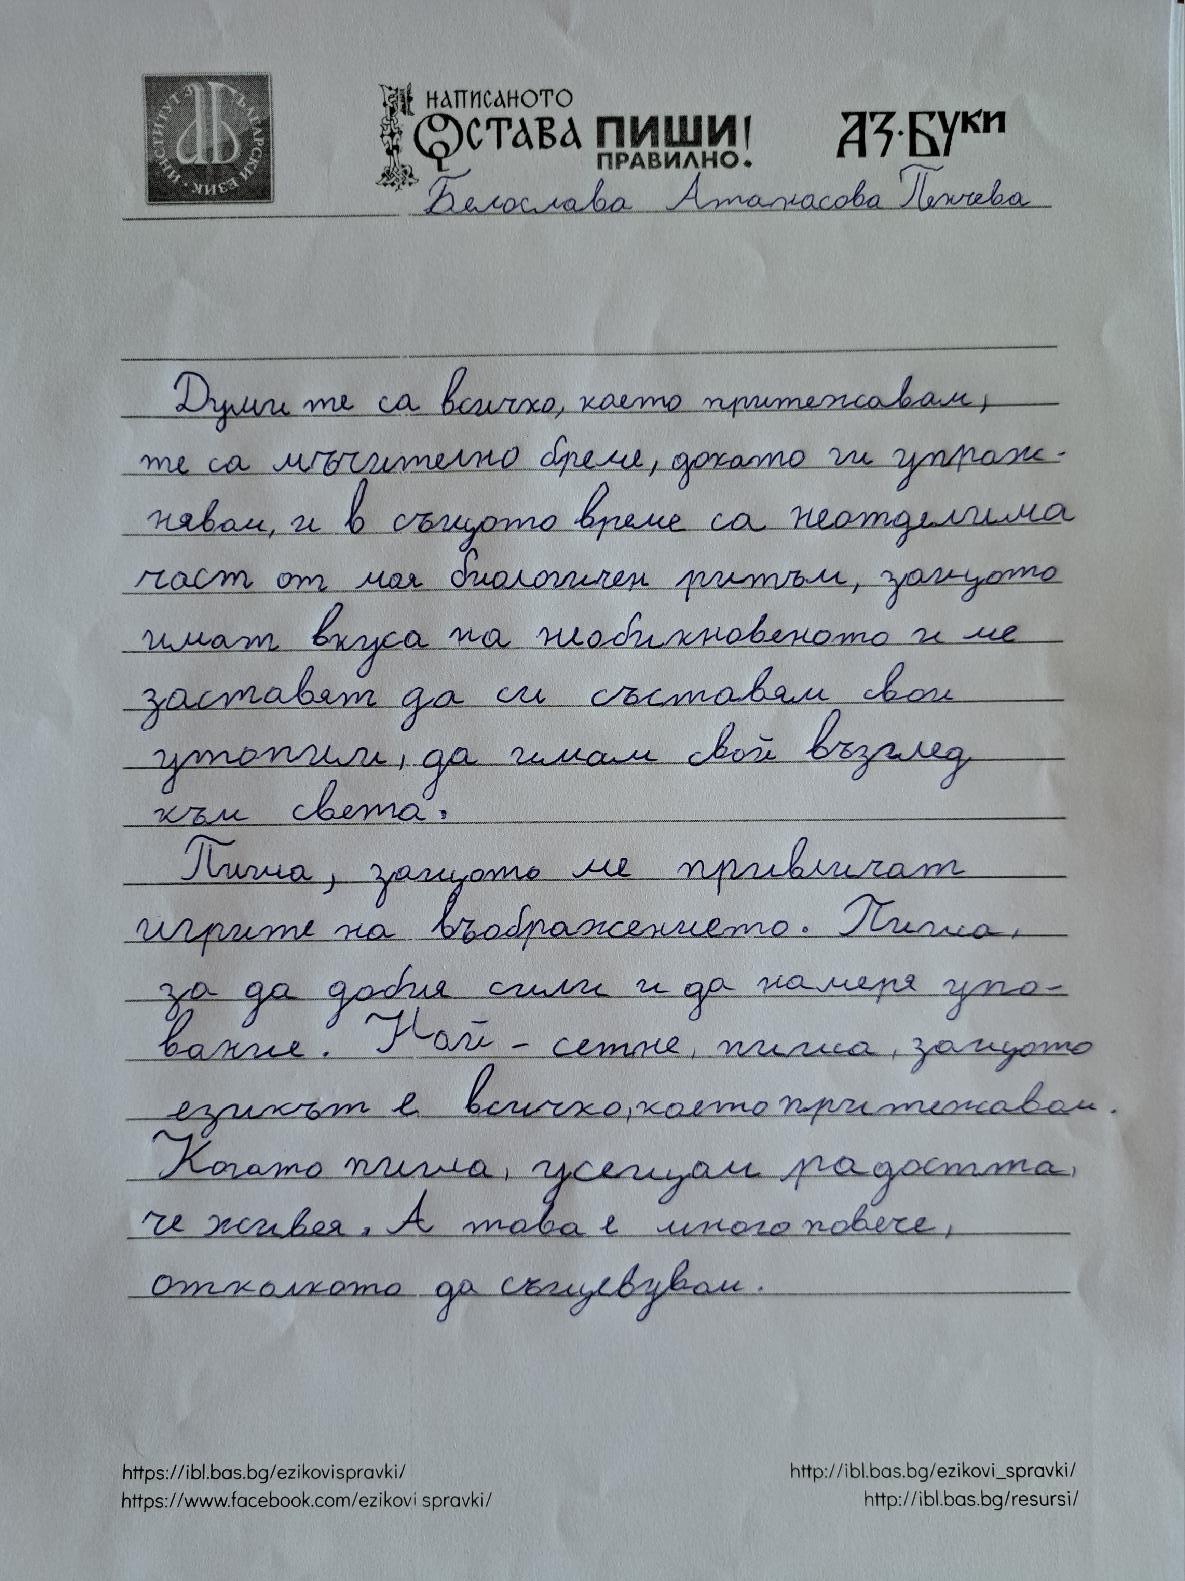 ИНСТИТУТ ЗА БЪЛГАРСКИ ЕЗИК
НАПИСАНОТО
ОСТАВА ПИШИ!
ПРАВИЛНО.
АЗ·БУКИ
Белослава Атанасова Пенчева
Думите са всичко, което притежавам,
те са мъчително бреме, докато ги упраж-
нявам, и в същото време са неотделима
част от моя биологичен ритъм, защото
имат вкуса на необикновеното и ме
заставят да си съставям свои
утопии, да имам свой възглед
към света.
Пиша, защото ме привличат
игрите на въображението. Пиша,
за да добия сили и да намеря упо-
вание. Най - сетне, пиша, защото
езикът е всичко, което притежавам.
Когато пиша, усещам радостта,
че живея. А това е много повече,
отколкото да съществувам.
https://ibl.bas.bg/ezikovispravki/
http://ibl.bas.bg/ezikovi_spravki/
https://www.facebook.com/ezikovi spravki/
http://ibl.bas.bg/resursi/